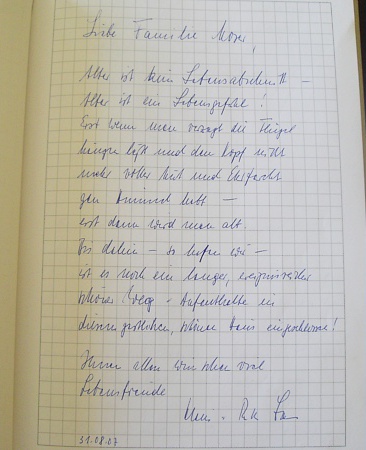 Liebe Familie Moser,
Alter ist kein Lebensabschnitt –
Alter ist ein Lebensgefühl!
Erst wenn man verzagt die Flügel
hängen läßt und den Kopf nicht
mehr voller Mut und Ehrfurcht
gen Himmel hebt –
erst dann wird man alt.
Bis dahin – so hoffen wir –
ist es noch ein langer, ereignisreicher
schöner Weg – Aufenthalte in
diesem gastlichen, schönen Haus eingeschlossen!
Ihnen allen wünschen viel
Lebensfreude
31.08.07